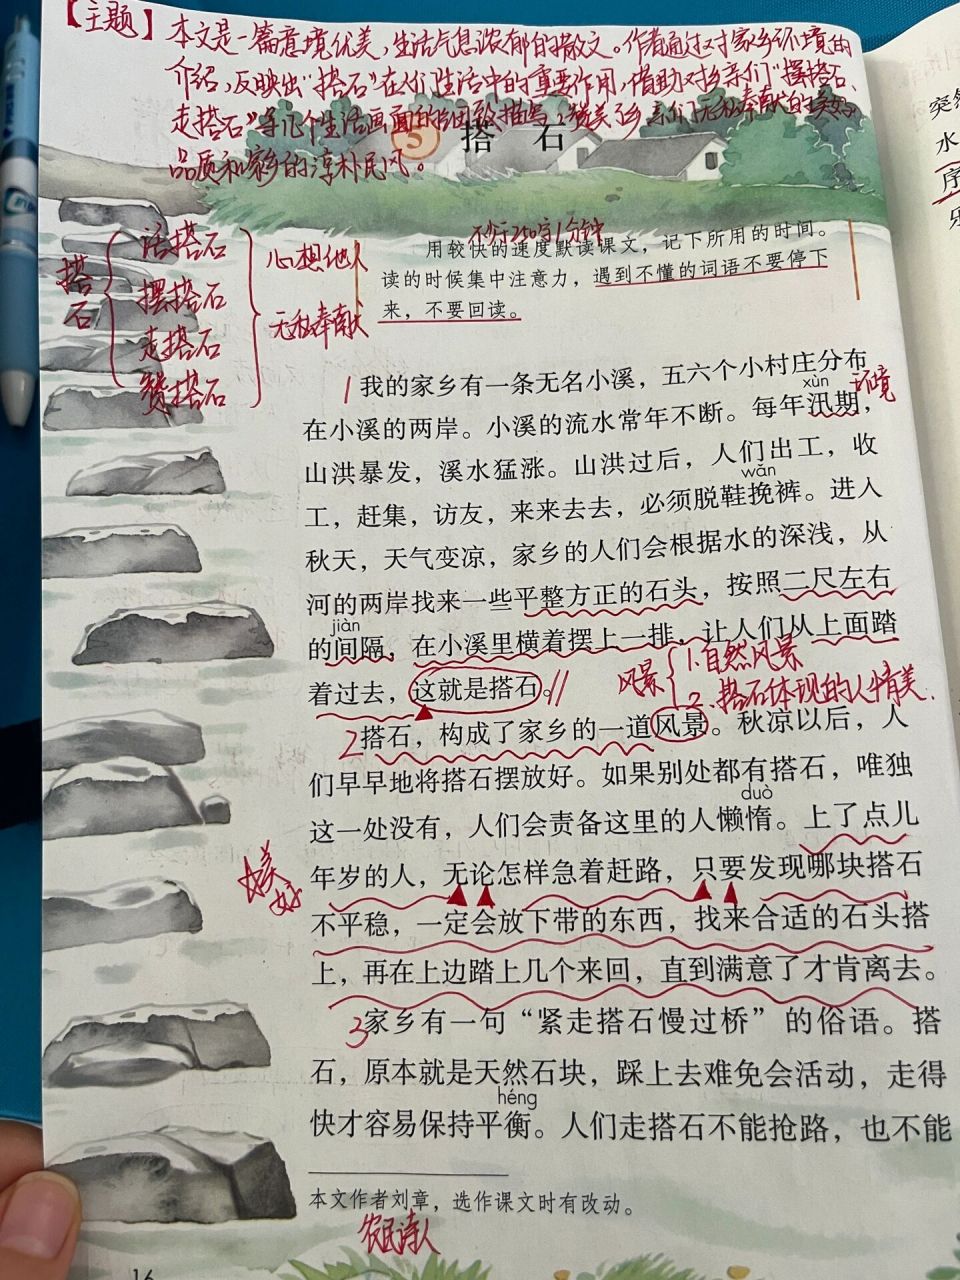 【主题】本文是一篇意境优美,生活气息浓郁的散文。作者通过对家乡环境的
介绍,反映出“搭石”在人们生活中的重要作用,借助对乡亲们“摆搭石、
走搭石”等几个生活画面的细致描写,赞美了乡亲们无私奉献的美好
品质和家乡的淳朴民风。
5 搭 石
搭石
话搭石
摆搭石
走搭石
赞搭石
心想他人
无私奉献
不少于200字1分钟
用较快的速度默读课文,记下所用的时间。
读的时候集中注意力,遇到不懂的词语不要停下
来,不要回读。
1我的家乡有一条无名小溪,五六个小村庄分布
xùn 环境
在小溪的两岸。小溪的流水常年不断。每年汛期,
山洪暴发,溪水猛涨。山洪过后,人们出工,收
wǎn
工,赶集,访友,来来去去,必须脱鞋挽裤。进入
秋天,天气变凉,家乡的人们会根据水的深浅,从
河的两岸找来一些平整方正的石头,按照二尺左右
jiàn
的间隔,在小溪里横着摆上一排,让人们从上面踏
着过去,这就是搭石。
风景 1.自然风景
2.搭石体现的人情美.
2搭石,构成了家乡的一道风景。秋凉以后,人
们早早地将搭石摆放好。如果别处都有搭石,唯独
duò
这一处没有,人们会责备这里的人懒惰。上了点儿
年岁的人,无论怎样急着赶路,只要发现哪块搭石
美好
不平稳,一定会放下带的东西,找来合适的石头搭
上,再在上边踏上几个来回,直到满意了才肯离去。
3家乡有一句“紧走搭石慢过桥”的俗语。搭
石,原本就是天然石块,踩上去难免会活动,走得
héng
快才容易保持平衡。人们走搭石不能抢路,也不能
本文作者刘章,选作课文时有改动。
农民诗人
16
突然
水
序
乐